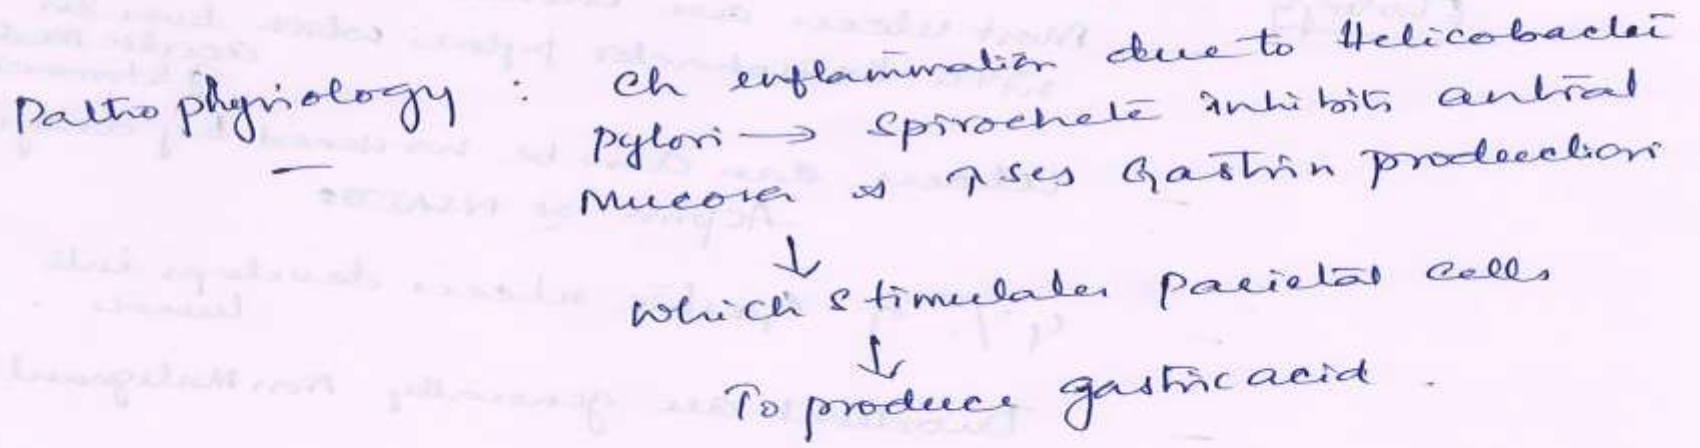 Pathophysiology : Ch inflammation due to Helicobacter
Pylori → Spirochete inhibits antral
Mucosa & ↑ses Gastrin production
↓
Which stimulates parietal cells
↓
To produce gastric acid .